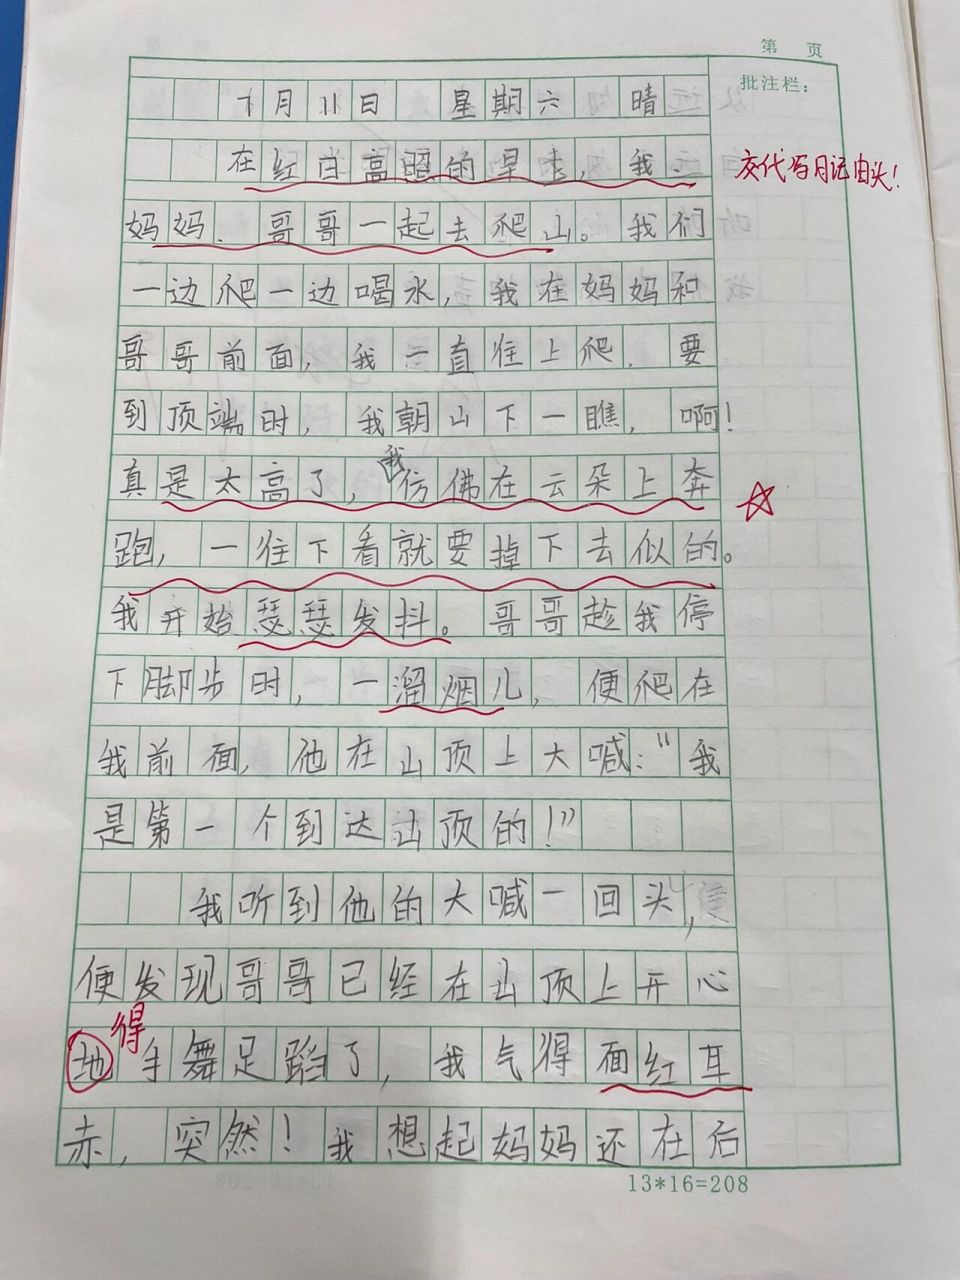 第 页
批注栏：
7月11日 星期六 晴
在红日高照的早来，我、
交代写日记由头！
妈妈、哥哥一起去爬山。我们
一边爬一边喝水，我在妈妈和
哥哥前面，我一直往上爬，要
到顶端时，我朝山下一瞧，啊！
真是太高了，我仿佛在云朵上奔
跑，一往下看就要掉下去似的。
我开始瑟瑟发抖。哥哥趁我停
下脚步时，一溜烟儿，便爬在
我前面，他在山顶上大喊：“我
是第一个到达山顶的！”
我听到他的大喊一回头，
便发现哥哥已经在山顶上开心
得
地手舞足蹈了，我气得面红耳
赤，突然！我想起妈妈还在后
13*16=208